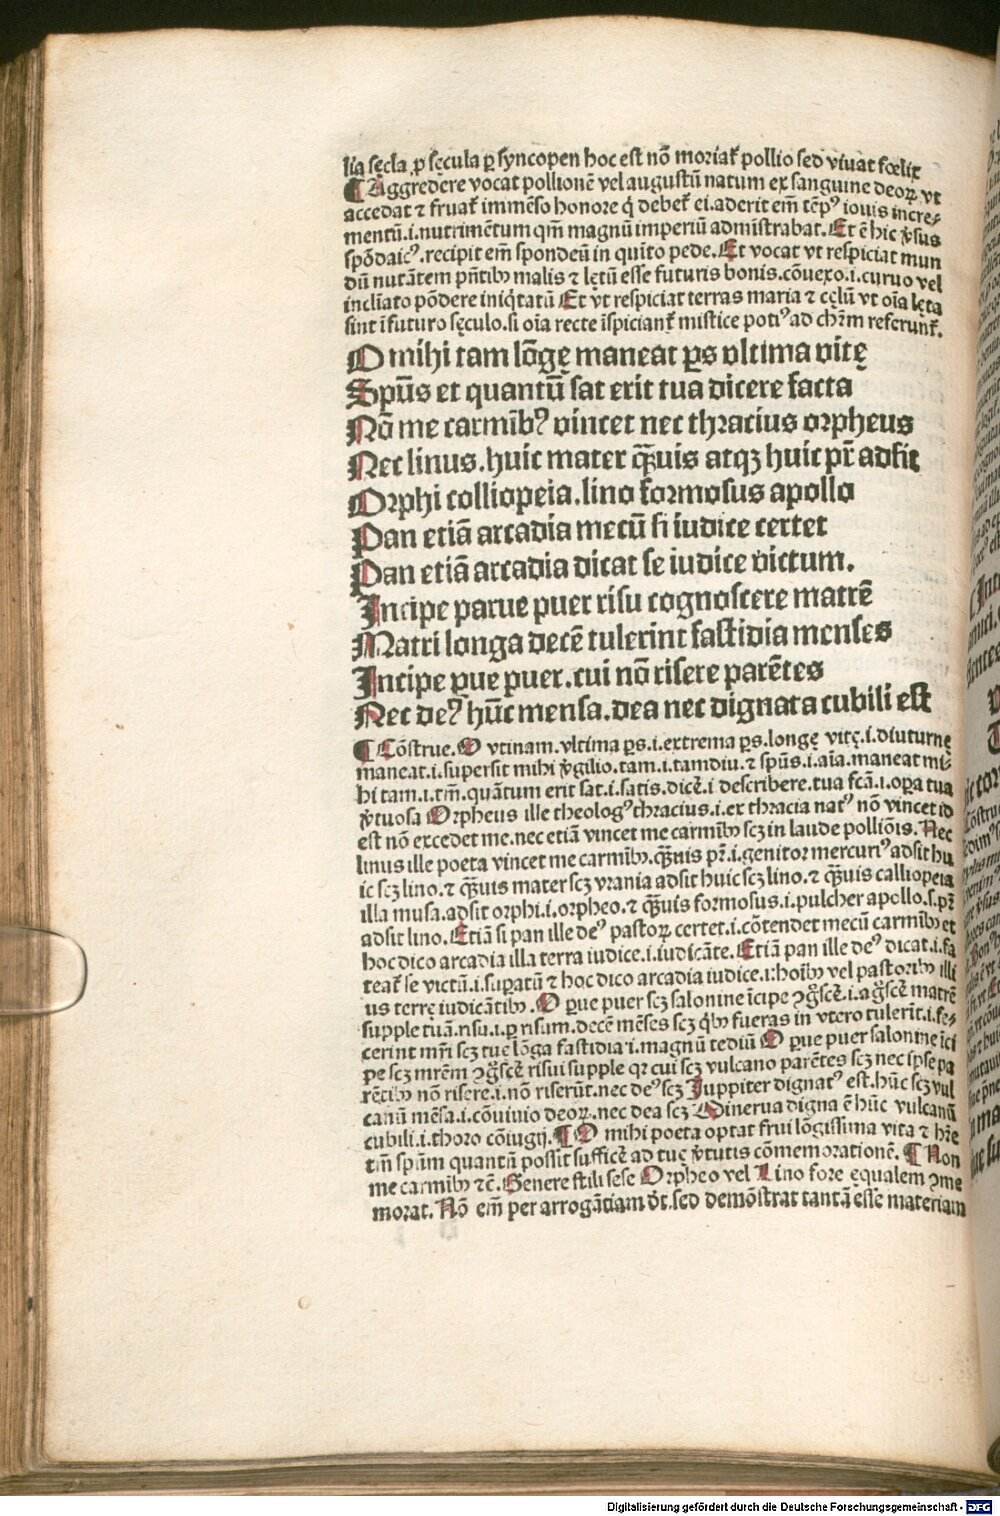 lia sęcla ꝓ sęcula ꝑ syncopen hoc est nõ moriat᷑ pollio sed vivat fœlix
¶ Aggredere vocat pollionẽ vel augustũ natum ex sanguine deoꝝ vt
accedat ⁊ fruat᷑ immẽso honore q̇ debet᷑ ei. aderit em̃ tẽpꝰ iouis incre-
mentũ .i. nutrimẽtum qm̃ magnũ imperiũ admĩstrabat. Et ẽ hic ꝟsus
spõdaicꝰ. recipit em̃ spondeũ in quĩto pede. Et vocat vt respiciat mun
dũ nutãtem pñtibꝰ malis ⁊ lętũ esse futuris bonis. cõuexo .i. curuo vel
inclĩato põdere iniq̇tatũ Et vt respiciat terras maria ⁊ cęlũ vt oĩa lęta
sint ĩ futuro sęculo. si oĩa recte ĩspiciant᷑ mistice potiꝰ ad chr̃m referunt᷑.
O mihi tam lõgę maneat ꝑs vltima vitę
Spũs et quantũ sat erit tua dicere facta
Nõ me carmĩbꝰ vincet nec thracius orpheus
Nec linus. huic mater q̃uis atqꝫ huic pr̃ adsit
Orphi colliopeia. lino formosus apollo
Pan etiã arcadia mecũ si iudice certet
Pan etiã arcadia dicat se iudice victum.
Incipe parue puer risu cognoscere matrẽ
Matri longa decẽ tulerint fastidia menses
Incipe ꝑue puer. cui nõ risere parẽtes
Nec deꝰ hũc mensa. dea nec dignata cubili est
¶ Cõstrue. O vtinam. vltima ꝑs .i. extrema ꝑs. longę vitę .i. diuturnę
maneat .i. supersit mihi ꝟgilio. tam .i. tamdiu. ⁊ spũs .i. aĩa. maneat mi-
hi tam .i. tm̃. quãtum erit sat .i. satis. dicẽ .i. describere. tua fcã .i. oꝑa tua
ꝟtuosa Orpheus ille theologꝰ thracius .i. ex thracia natꝰ nõ vincet id
est nõ excedet me. nec etiã vincet me carmĩbꝰ scꝫ in laude polliõis. Nec
linus ille poeta vincet me carmĩbꝰ. q̃uis pr̃ .i. genitor mercuriꝰ adsit hu
ic scꝫ lino. ⁊ q̃uis mater scꝫ vrania adsit huic scꝫ lino. ⁊ q̃uis calliopeia
illa musa. adsit orphi .i. orpheo. ⁊ q̃uis formosus .i. pulcher apollo .s. pr̃
adsit lino. Etiã si pan ille deꝰ pastoꝝ certet .i. cõtendet mecũ carmĩbꝰ et
hoc dico arcadia illa terra iudice .i. iudicãte. Etiã pan ille deꝰ dicat .i. fa
teat᷑ se victũ .i. suꝑatũ ⁊ hoc dico arcadia iudice .i: hoĩbꝰ vel pastoribꝰ illi
us terrę iudicãtibꝰ. O ꝑue puer scꝫ salonine ĩcipe ꝯg̊scẽ .i. ag̊scẽ matrẽ
supple tuã. risu .i. ꝑ risum. decẽ mẽses scꝫ q̇bꝰ fueras in vtero tulerĩt .i. fe-
cerint mr̃i scꝫ tuę lõga fastidia .i. magnũ tediũ O ꝑue puer salonine ĩci
pe scꝫ mr̃em ꝯg̊scẽ risui supple qꝛ cui scꝫ vulcano parẽtes scꝫ nec ipse pa
rẽtibꝰ nõ risere .i. nõ riserũt. nec deꝰ scꝫ Juppiter dignatꝰ est. hũc scꝫ vul
canũ mẽsa .i. cõuiuio deoꝝ. nec dea scꝫ Minerua digna ẽ hũc vulcanũ
cubili .i. thoro cõiugij. ¶ O mihi poeta optat frui lõgissima vita ⁊ hr̃e
tm̃ spũm quantũ possit sufficẽ ad tuę ꝟtutis cõmemorationẽ. ¶ Non
me carmĩbꝰ ⁊c̃. Genere stili sese Orpheo vel Lino fore ęqualem ꝯme
morat. Nõ em̃ per arrogãtiam dr̃t. sed demõstrat tantã esse materiam